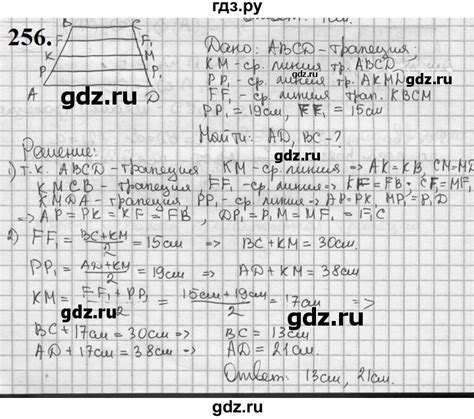 гдз.ру
256.
B C
F F₁
K M
P P₁
A D
Дано: ABCD-трапеция;
KM-ср. линия тр. ABCD
PP₁-ср. линия тр. AKMD
FF₁-ср. линия трап. KBCM
PP₁ = 19см, FF₁ = 15см
Найти: AD, BC-?
Решение:
1) т.к. ABCD-трапеция KM-ср. линия => AK=KB, CM=MD
KMCB-трапеция, FF₁-ср. линия => KF=FB, CF₁=MF₁
KMDA-трапеция, PP₁-ср. линия => AP=PK, MP₁=P₁D
=> AP=PK=KF=FB, DP₁=P₁M=MF₁=F₁C
2) FF₁ = BC+KM/2 = 15см => BC+KM=30см.
PP₁ = AD+KM/2 = 19см => AD+KM=38см.
KM = FF₁+PP₁/2 = 15см+19см/2 = 17см =>
BC+17см=30см => BC=13см
AD+17см=38см => AD=21см.
Ответ: 13см, 21см.
gdz.ru
gdz.ru
gdz.ru
gdz.ru
gdz.ru
gdz.ru
gdz.ru